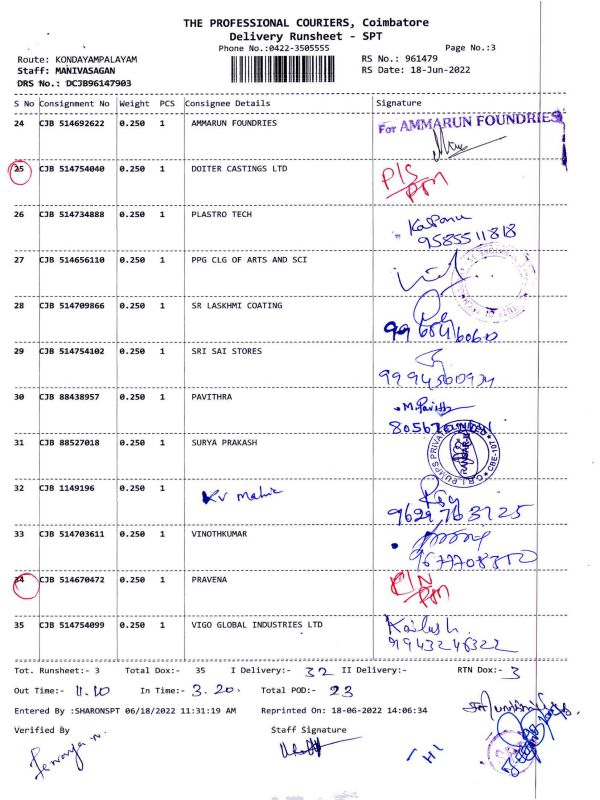 THE PROFESSIONAL COURIERS, Coimbatore
Delivery Runsheet - SPT
Phone No.:0422-3505555
Page No.:3
Route: KONDAYAMPALAYAM
RS No.: 961479
Staff: MANIVASAGAN
RS Date: 18-Jun-2022
DRS No.: DCJB96147903
S No Consignment No Weight PCS Consignee Details Signature
24 CJB 514692622 0.250 1 AMMARUN FOUNDRIES For AMMARUN FOUNDRIES
25 CJB 514754040 0.250 1 DOITER CASTINGS LTD P/S
26 CJB 514734888 0.250 1 PLASTRO TECH
9585511818
27 CJB 514656110 0.250 1 PPG CLG OF ARTS AND SCI
28 CJB 514709866 0.250 1 SR LASKHMI COATING
29 CJB 514754102 0.250 1 SRI SAI STORES
30 CJB 88438957 0.250 1 PAVITHRA
31 CJB 88527018 0.250 1 SURYA PRAKASH
32 CJB 1149196 0.250 1
9629763725
33 CJB 514703611 0.250 1 VINOTHKUMAR
34 CJB 514670472 0.250 1 PRAVENA
35 CJB 514754099 0.250 1 VIGO GLOBAL INDUSTRIES LTD Kailash.
9943246322
Tot. Runsheet:- 3 Total Dox:- 35 I Delivery:- 32 II Delivery:- RTN Dox:- 3
Out Time:- 11.10 In Time:- 3.20. Total POD:- 23
Entered By :SHARONSPT 06/18/2022 11:31:19 AM Reprinted On: 18-06-2022 14:06:34
Verified By Staff Signature